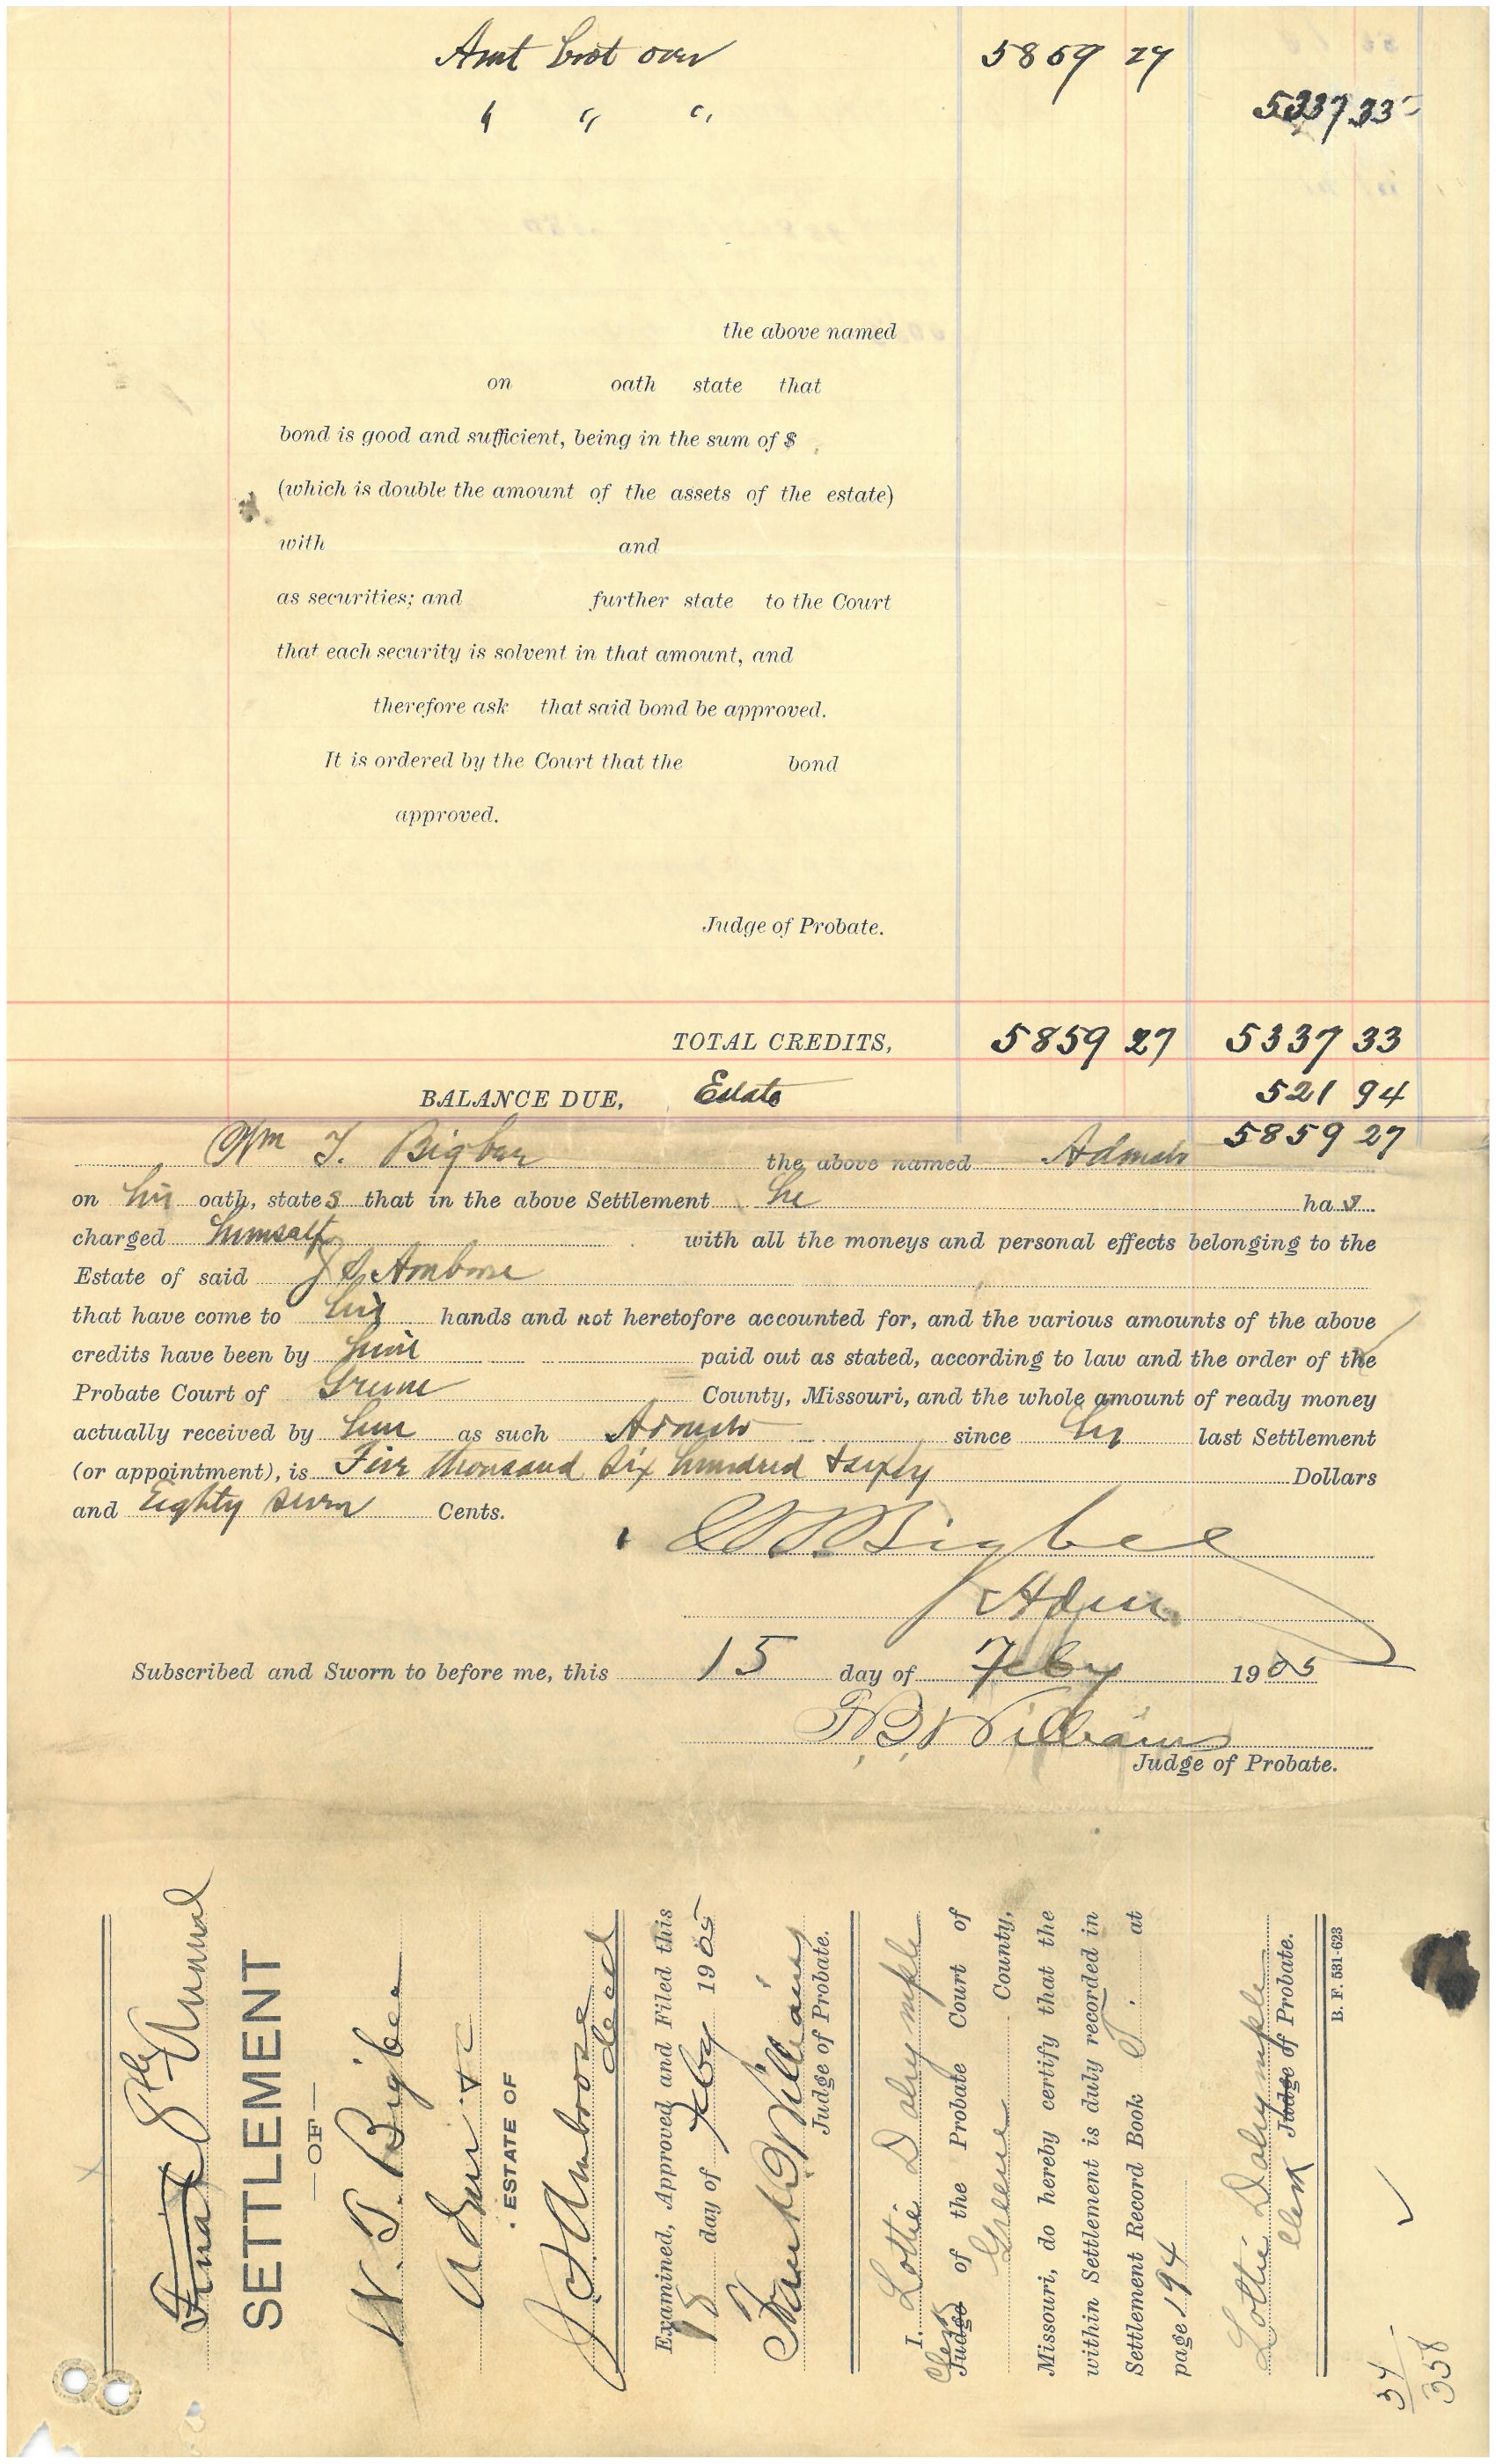 Amt brot over 5859 27
" " " 5337 33
the above named
on oath state that
bond is good and sufficient, being in the sum of $
(which is double the amount of the assets of the estate)
with and
as securities; and further state to the Court
that each security is solvent in that amount, and
therefore ask that said bond be approved.
It is ordered by the Court that the bond
approved.
Judge of Probate.
TOTAL CREDITS, 5859 27 5337 33
BALANCE DUE, Estate 521 94
5859 27
Wm T. Bigbee the above named Admstr
on his oath, states that in the above Settlement he has
charged himself with all the moneys and personal effects belonging to the
Estate of said J S Ambrose
that have come to his hands and not heretofore accounted for, and the various amounts of the above
credits have been by him paid out as stated, according to law and the order of the
Probate Court of Greene County, Missouri, and the whole amount of ready money
actually received by him as such Admstr since his last Settlement
(or appointment), is Five thousand Six hundred + sixty Dollars
and Eighty seven Cents.
W T Bigbee
Adm.
Subscribed and Sworn to before me, this 15 day of Feby 1905
F. B. Williams
Judge of Probate.
Final Annual
SETTLEMENT
—OF—
W. T. Bigbee
Adm &c
ESTATE OF
J S Ambrose
decd
Examined, Approved and Filed this
18 day of Feby 1905
Frank B Williams
Judge of Probate.
I, Lottie Dalrymple
Clerk Judge of the Probate Court of
Greene County,
Missouri, do hereby certify that the
within Settlement is duly recorded in
Settlement Record Book T. at
page 194
Lottie Dalrymple
Clerk Judge of Probate.
B. F. 531-623
34
358